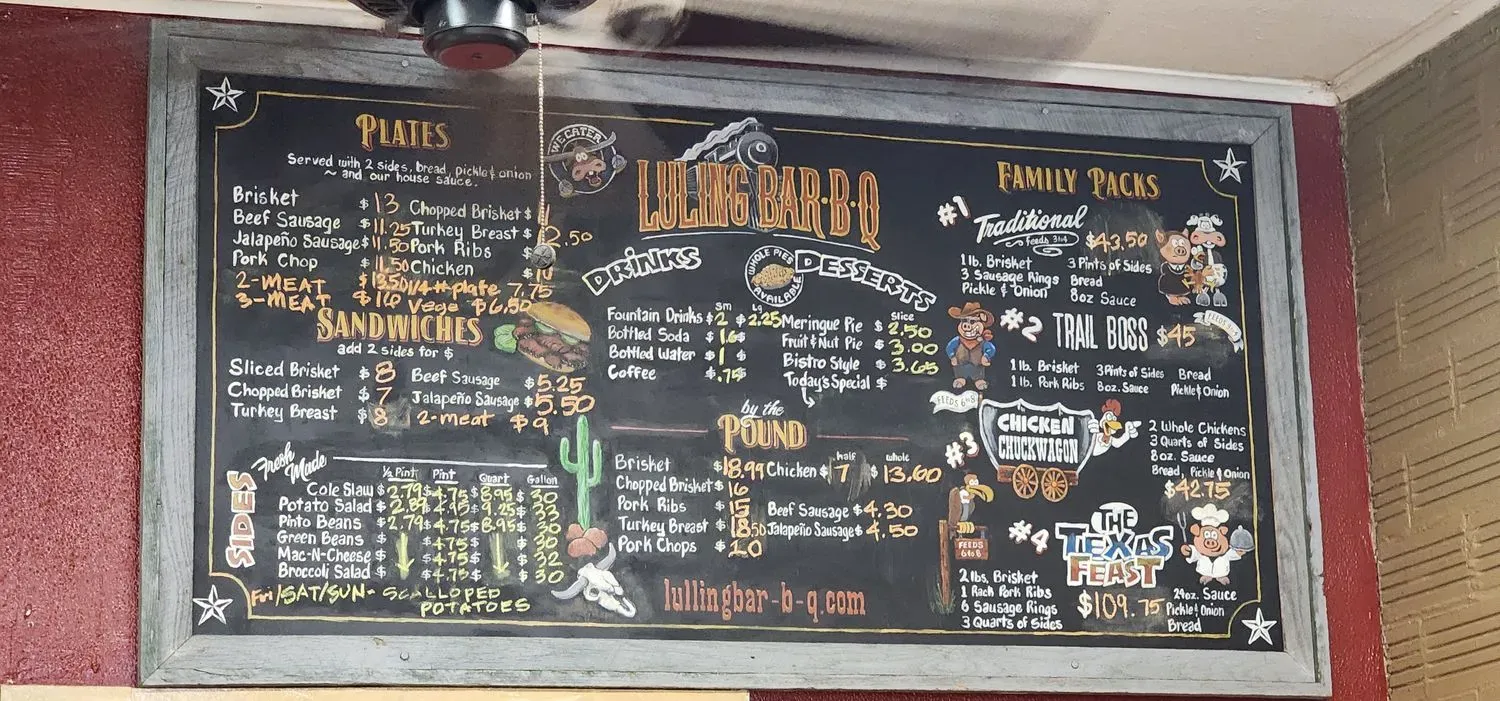 PLATES
Served with 2 sides, bread, pickle & onion
~ and our house sauce.
Brisket $13
Beef Sausage $11.25
Jalapeño Sausage $11.50
Pork Chop $11.50
2-MEAT $13.50
3-MEAT $16
Chopped Brisket $
Turkey Breast $ 12.50
Pork Ribs $
Chicken $10
1/4# plate 7.75
Vege $6.50
WE CATER
SANDWICHES
add 2 sides for $
Sliced Brisket $8
Chopped Brisket $7
Turkey Breast $8
Beef Sausage $5.25
Jalapeño Sausage $5.50
2-meat $9
SIDES
Fresh Made
½ Pint Pint Quart Gallon
Cole Slaw $2.79 $4.75 $8.95 $30
Potato Salad $2.89 $4.95 $9.25 $33
Pinto Beans $2.79 $4.75 $8.95 $30
Green Beans $ $4.75 $ $30
Mac-N-Cheese $ $4.75 $ $32
Broccoli Salad $ $4.75 $ $30
Fri/SAT/SUN- SCALLOPED
POTATOES
LULING BAR·B·Q
DRINKS
Sm Lg
Fountain Drinks $2 $2.25
Bottled Soda $
Bottled Water $1 $
Coffee $.75
WHOLE PIES
AVAILABLE
DESSERTS
Slice
Meringue Pie $2.50
Fruit & Nut Pie $3.00
Bistro Style $3.65
Today's Special $
by the
POUND
Brisket $18.99
Chopped Brisket $16
Pork Ribs $15
Turkey Breast $18.50
Pork Chops $20
half whole
Chicken $7 $13.60
Beef Sausage $4.30
Jalapeño Sausage $4.50
lullingbar-b-q.com
FAMILY PACKS
#1
Traditional $43.50
Feeds 3to4
1 lb. Brisket 3 Pints of Sides
3 Sausage Rings Bread
Pickle & Onion 8oz Sauce
#2 TRAIL BOSS $45
1 lb. Brisket 3 Pints of Sides Bread
1 lb. Pork Ribs 8oz. Sauce Pickle & Onion
FEEDS 6to8
#3
CHICKEN
CHUCKWAGON
2 Whole Chickens
3 Quarts of Sides
8oz. Sauce
Bread, Pickle & Onion
$42.75
FEEDS
6to8
#4
THE
TEXAS
FEAST
$109.75
2 lbs. Brisket
1 Rack Pork Ribs
6 Sausage Rings
3 Quarts of Sides
24oz. Sauce
Pickle & Onion
Bread